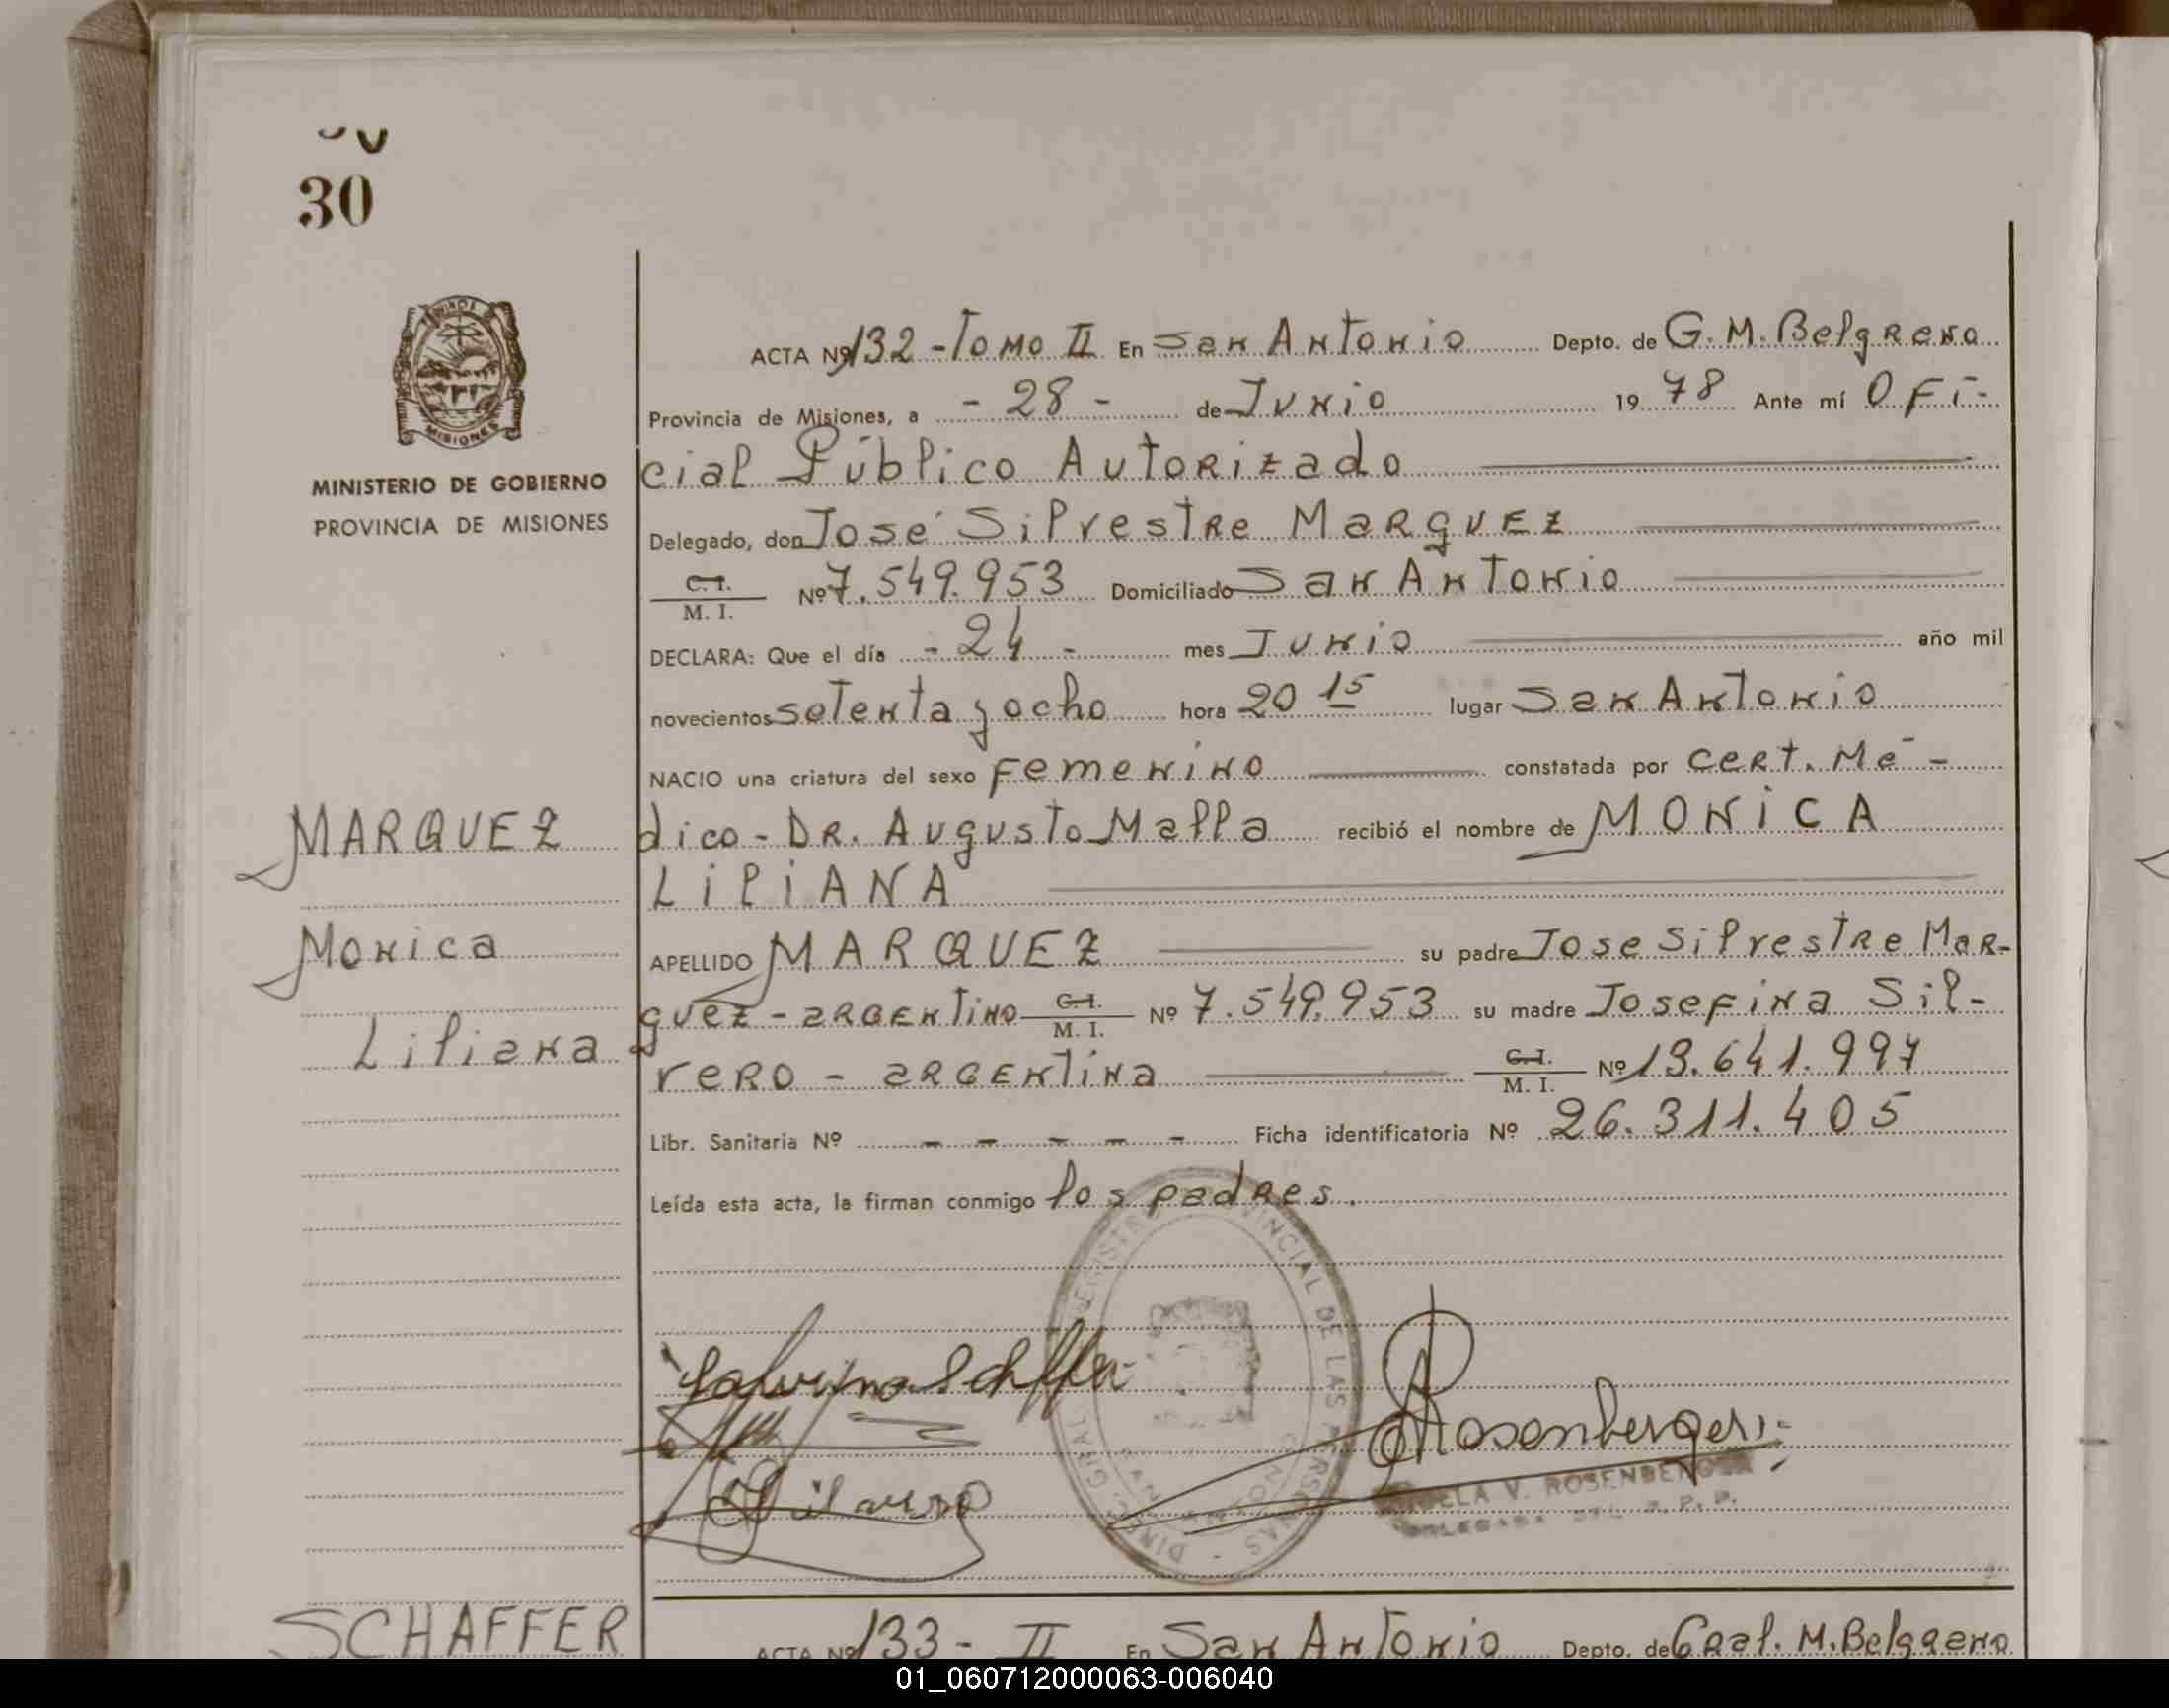 30
MINISTERIO DE GOBIERNO
PROVINCIA DE MISIONES
MARQUEZ
Monica
Liliana
ACTA Nº 132 - Tomo II En San Antonio Depto. de G. M. Belgrano
Provincia de Misiones, a - 28 - de Junio 19 78 Ante mí Ofi-
cial Público Autorizado
Delegado, don José Silvestre Marquez
C. I. / M. I. Nº 7.549.953 Domiciliado San Antonio
DECLARA: Que el día - 24 - mes Junio año mil
novecientos setenta y ocho hora 20 15 lugar San Antonio
NACIO una criatura del sexo Femenino constatada por Cert. Mé-
dico - DR. Augusto Malla recibió el nombre de MONICA
LILIANA
APELLIDO MARQUEZ su padre Jose Silvestre Mar-
quez - argentino C. I. / M. I. Nº 7.549.953 su madre Josefina Sil-
vero - argentina C. I. / M. I. Nº 13.641.997
Libr. Sanitaria Nº - - - - - Ficha identificatoria Nº 26.311.405
Leída esta acta, la firman conmigo los padres.
Rosenberger
V. ROSENBERGER
SCHAFFER
ACTA Nº 133 - II En San Antonio Depto. de Gral. M. Belgrano
01_060712000063-006040